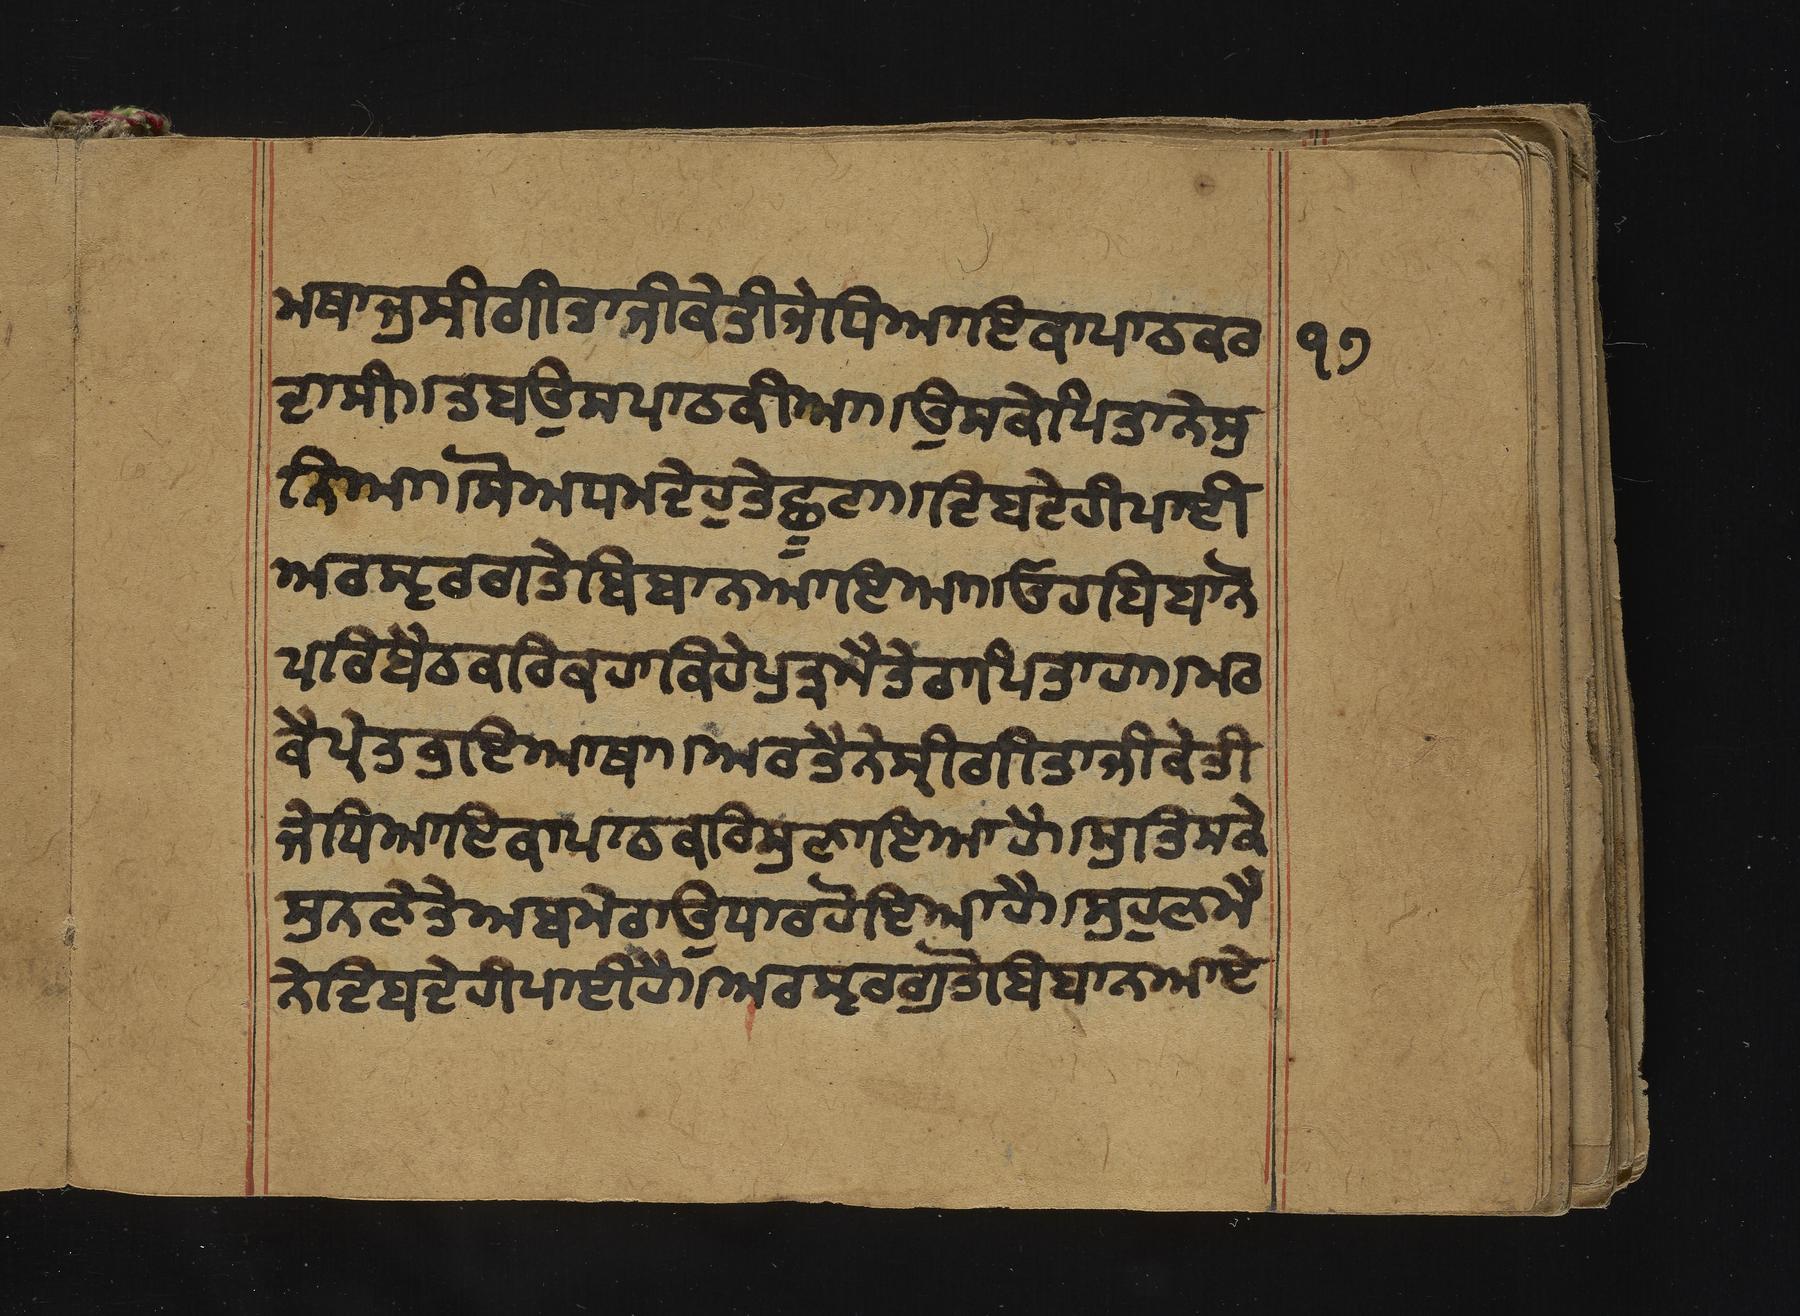 ਮਥਾਜੁਸ੍ਰੀਗੀਤਾਜੀਕੇਤੀਜੇਧਿਆਇਕਾਪਾਠਕਰ ੧੭
ਦਾਸੀ।ਤਬਉਸਪਾਠਕੀਆ।ਉਸਕੇਪਿਤਾਨੇਸੁ
ਨਿਆ।ਸੋਅਧਮਦੇਹੁਤੇਛੂਟਾ।ਦਿਬਦੇਹੀਪਾਈ
ਅਰਸ੍ਵਰਗਤੇਬਿਬਾਨਆਇਆ।ਓਹਬਿਬਾਨੋ
ਪਰਿਬੈਠਕਰਿਕਹਾਕਿਹੇਪੁਤ੍ਰਮੈਤੇਰਾਪਿਤਾਹਾ।ਮਰ
ਕੈਪ੍ਰੇਤਭੁਇਆਥਾ।ਅਰਤੈਨੇਸ੍ਰੀਗੀਤਾਜੀਕੇਤੀ
ਜੇਧਿਆਇਕਾਪਾਠਕਰਿਸੁਣਾਇਆਹੈ।ਸੁਤਿਸਕੇ
ਸੁਨਣੇਤੇਅਬਮੇਰਾਉਧਾਰਹੋਇਆਹੈ।ਸੁਹੁਣਮੈ
ਨੇਦਿਬਦੇਹੀਪਾਈਹੈ।ਅਰਸ੍ਵਰਗੁਤੋਬਿਬਾਨਆਏ